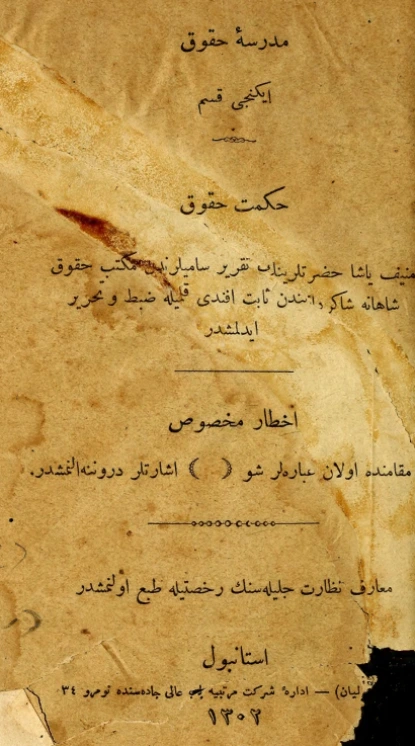 مدرسهٔ حقوق
ایکنجی قسم
حکمت حقوق
منیف پاشا حضرتلرینك تقریر سامیلرندن مکتب حقوق
شاهانه شاکردانندن ثابت افندی قلمیله ضبط و تحریر
ایدلمشدر
اخطار مخصوص
مقامنده اولان عبارەلر شو ( ) اشارتلر دروننه النمشدر.
معارف نظارت جلیلەسنك رخصتیله طبع اولنمشدر
استانبول
لیان) — ادارهٔ شرکت مرتبیه باب عالی جادەسنده نومرو ٣٤
١٣٠٢